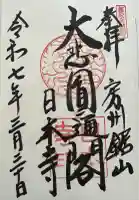 奉拝
房州鋸山
大悲圓通閣
日本寺
令和七年三月三十日